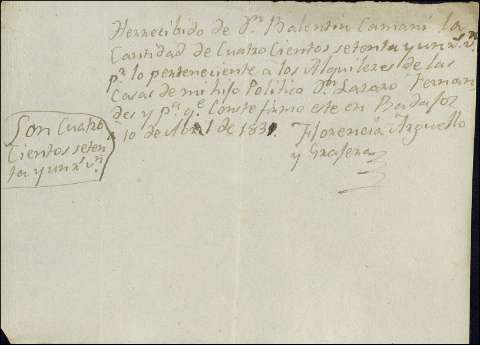 Herrecibido de Dn. Balentin Camani la
Cantidad de Cuatro Cientos setenta y un rs. vn.
pr. lo perteneciente à los Alquileres de las
Casas de mi hijo Politico Dn. Lazaro Fernan
des y pa. qe. Conste firmo este en Badajoz
à 10 de Abril de 183
Florencia Arguello
y Grajera
Son Cuatro
Cientos seten
ta y un rs. vn.